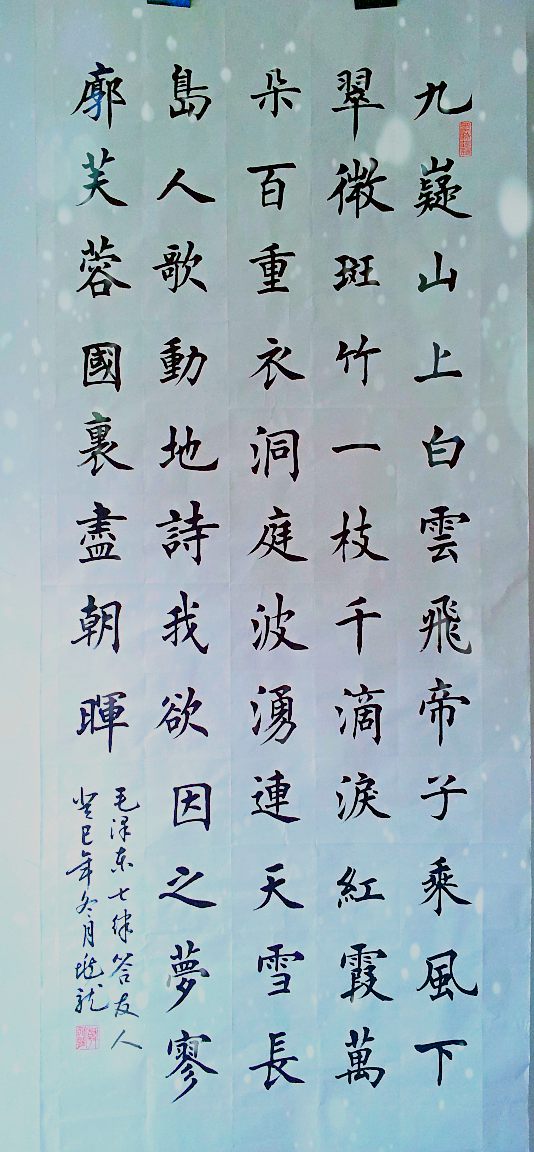 九嶷山上白雲飛帝子乘風下
翠微斑竹一枝千滴淚紅霞萬
朵百重衣洞庭波湧連天雪長
島人歌動地詩我欲因之夢寥
廓芙蓉國裏盡朝暉
毛泽东七律答友人
癸巳年冬月龙